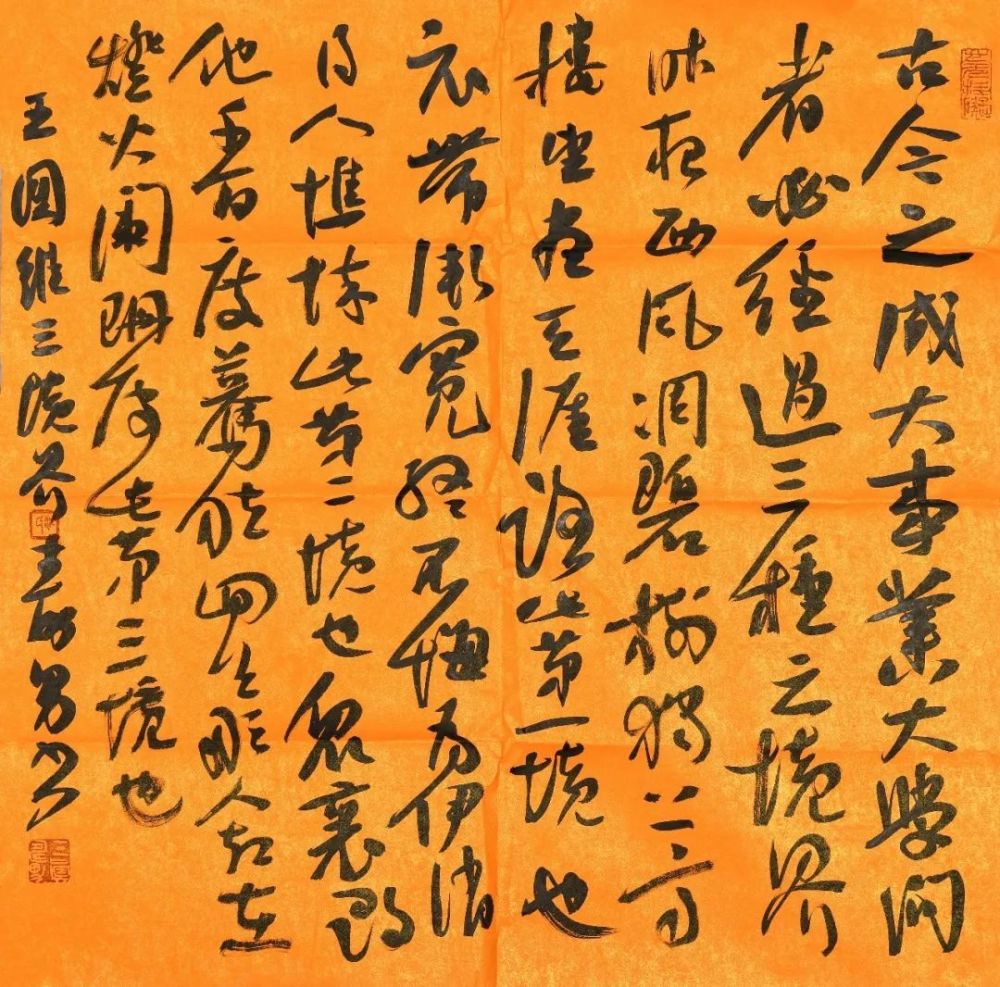 古今之成大事業大學問
者必經過三種之境界
昨夜西風凋碧樹獨上高
樓望盡天涯路此第一境也
衣帶漸寬終不悔為伊消
得人憔悴此第二境也眾裏尋
他千百度驀然回首那人却在
燈火闌珊處此第三境也
王國維三境界